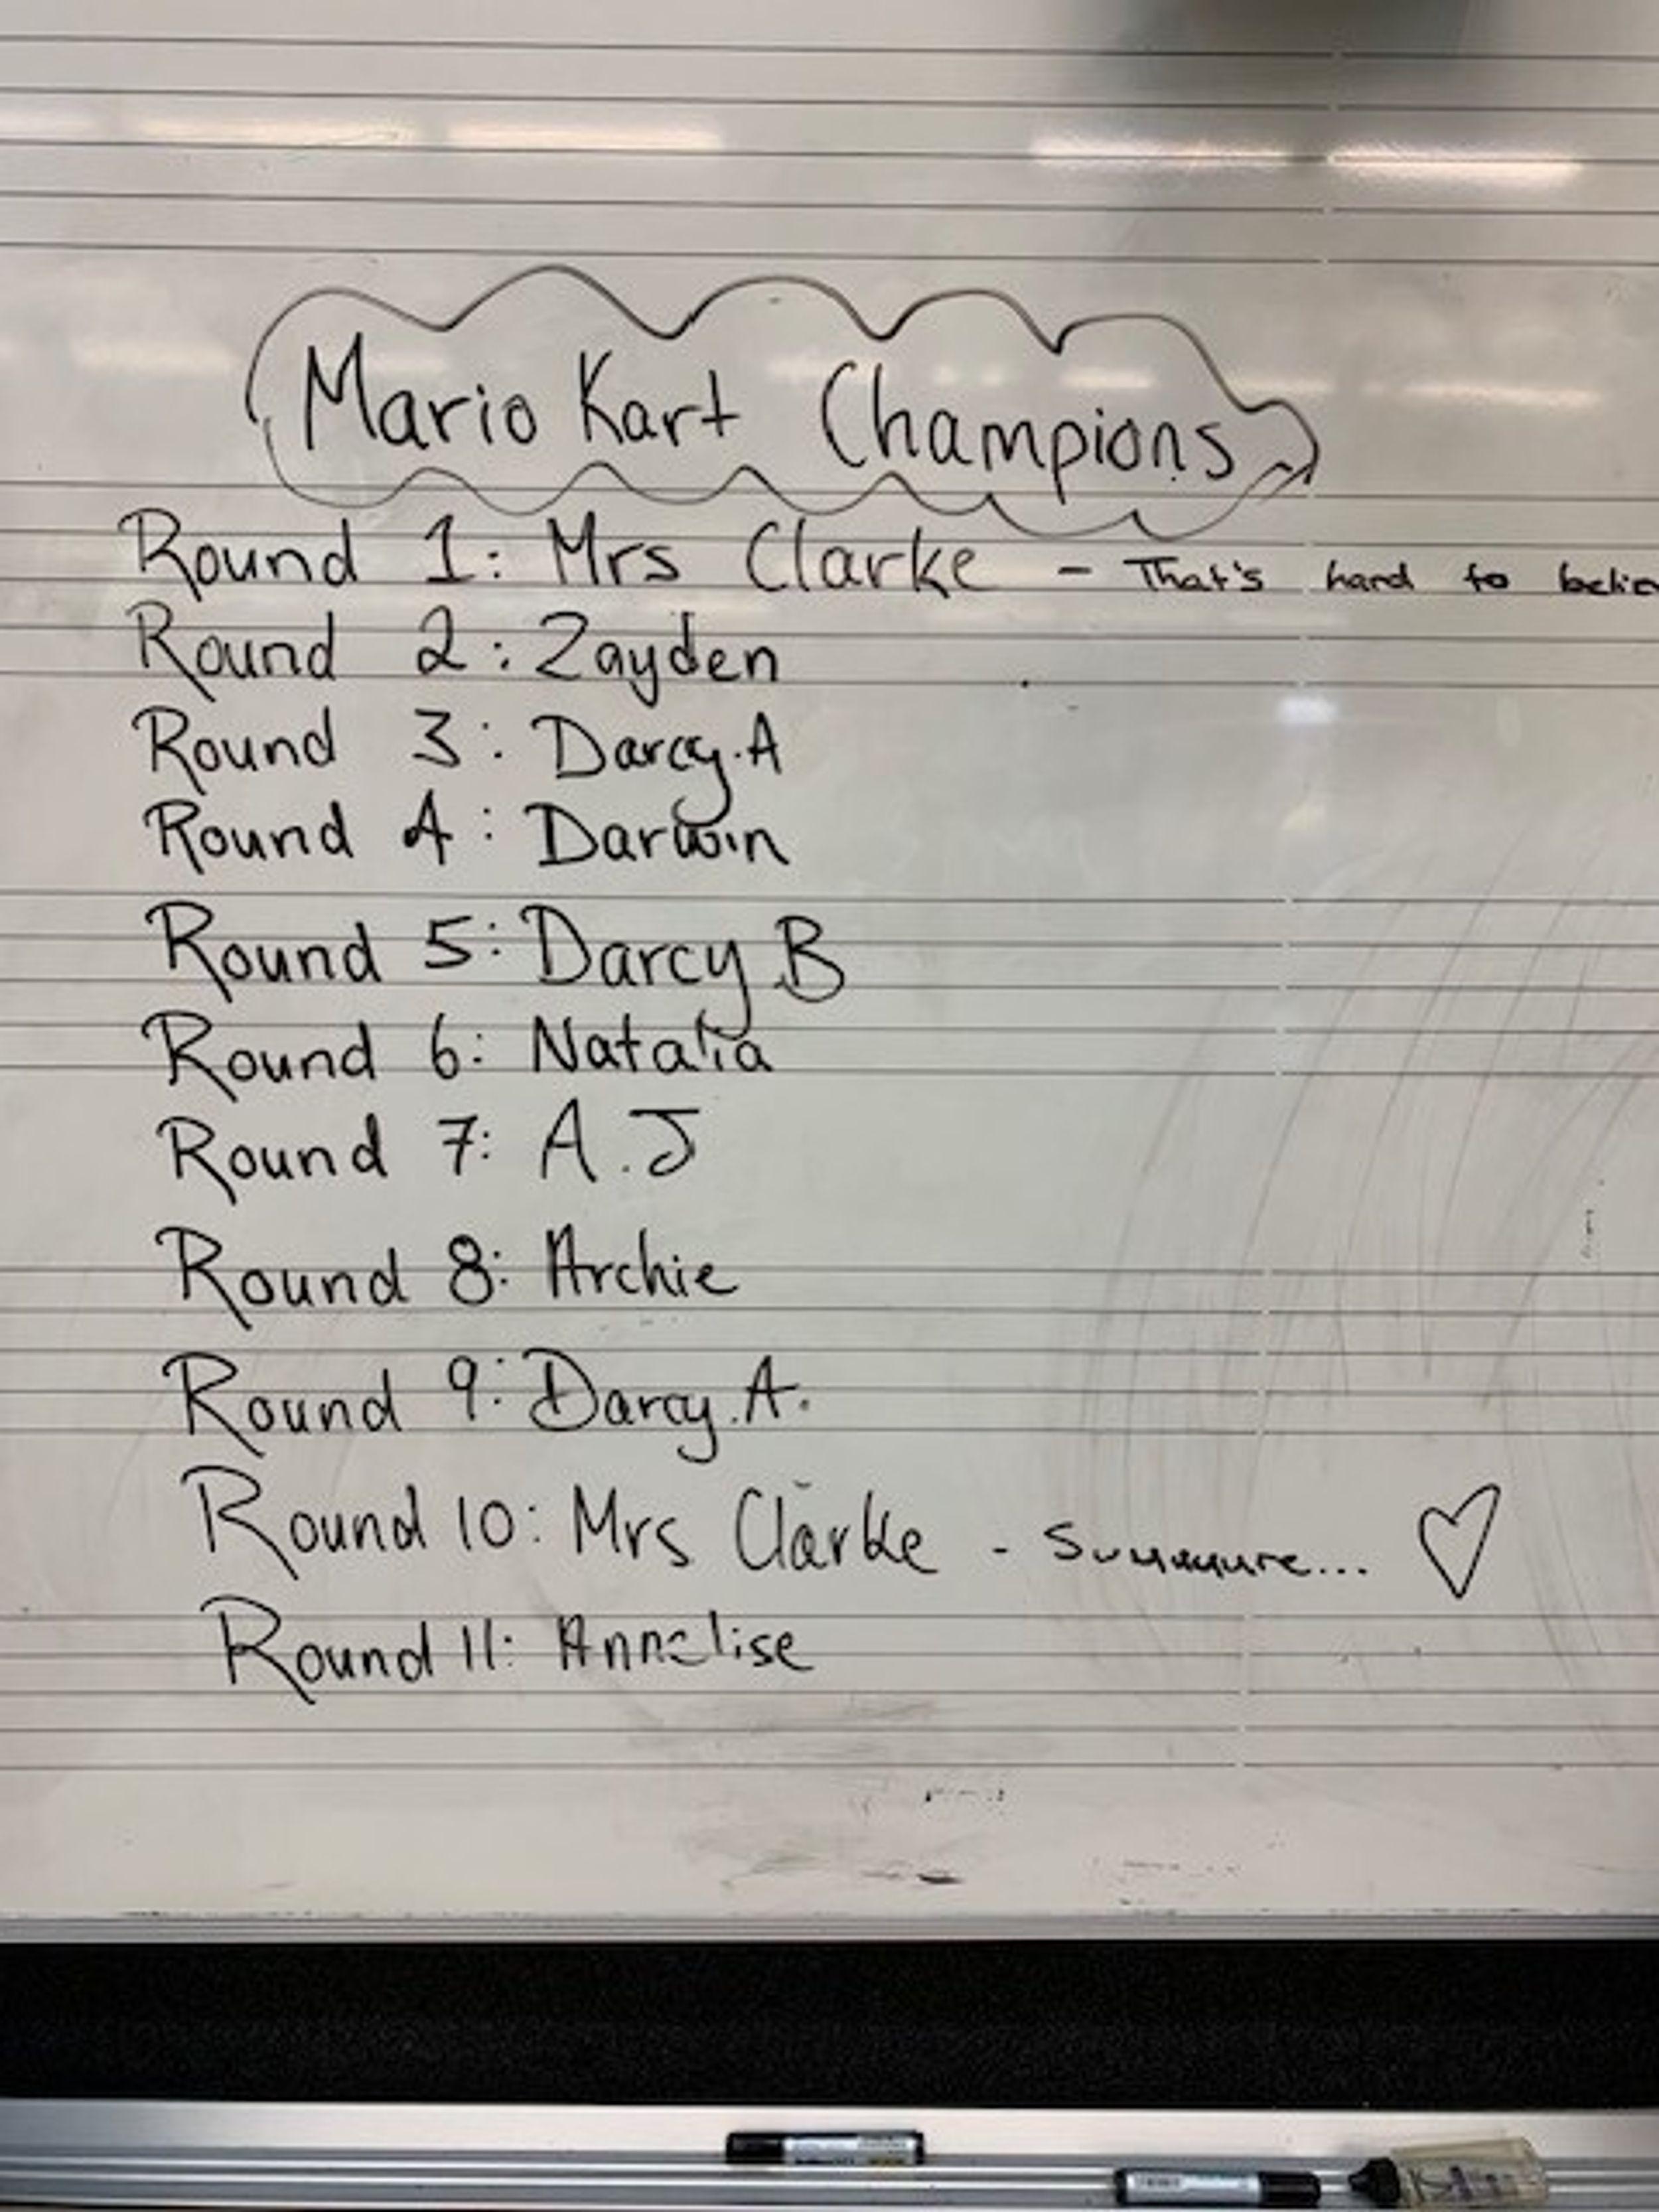 Mario Kart Champions
Round 1: Mrs Clarke - That's hard to belie
Round 2: Zayden
Round 3: Darcy.A
Round 4: Darwin
Round 5: Darcy B
Round 6: Natalia
Round 7: A.J
Round 8: Archie
Round 9: Darcy.A.
Round 10: Mrs Clarke -
Round 11: Annelise